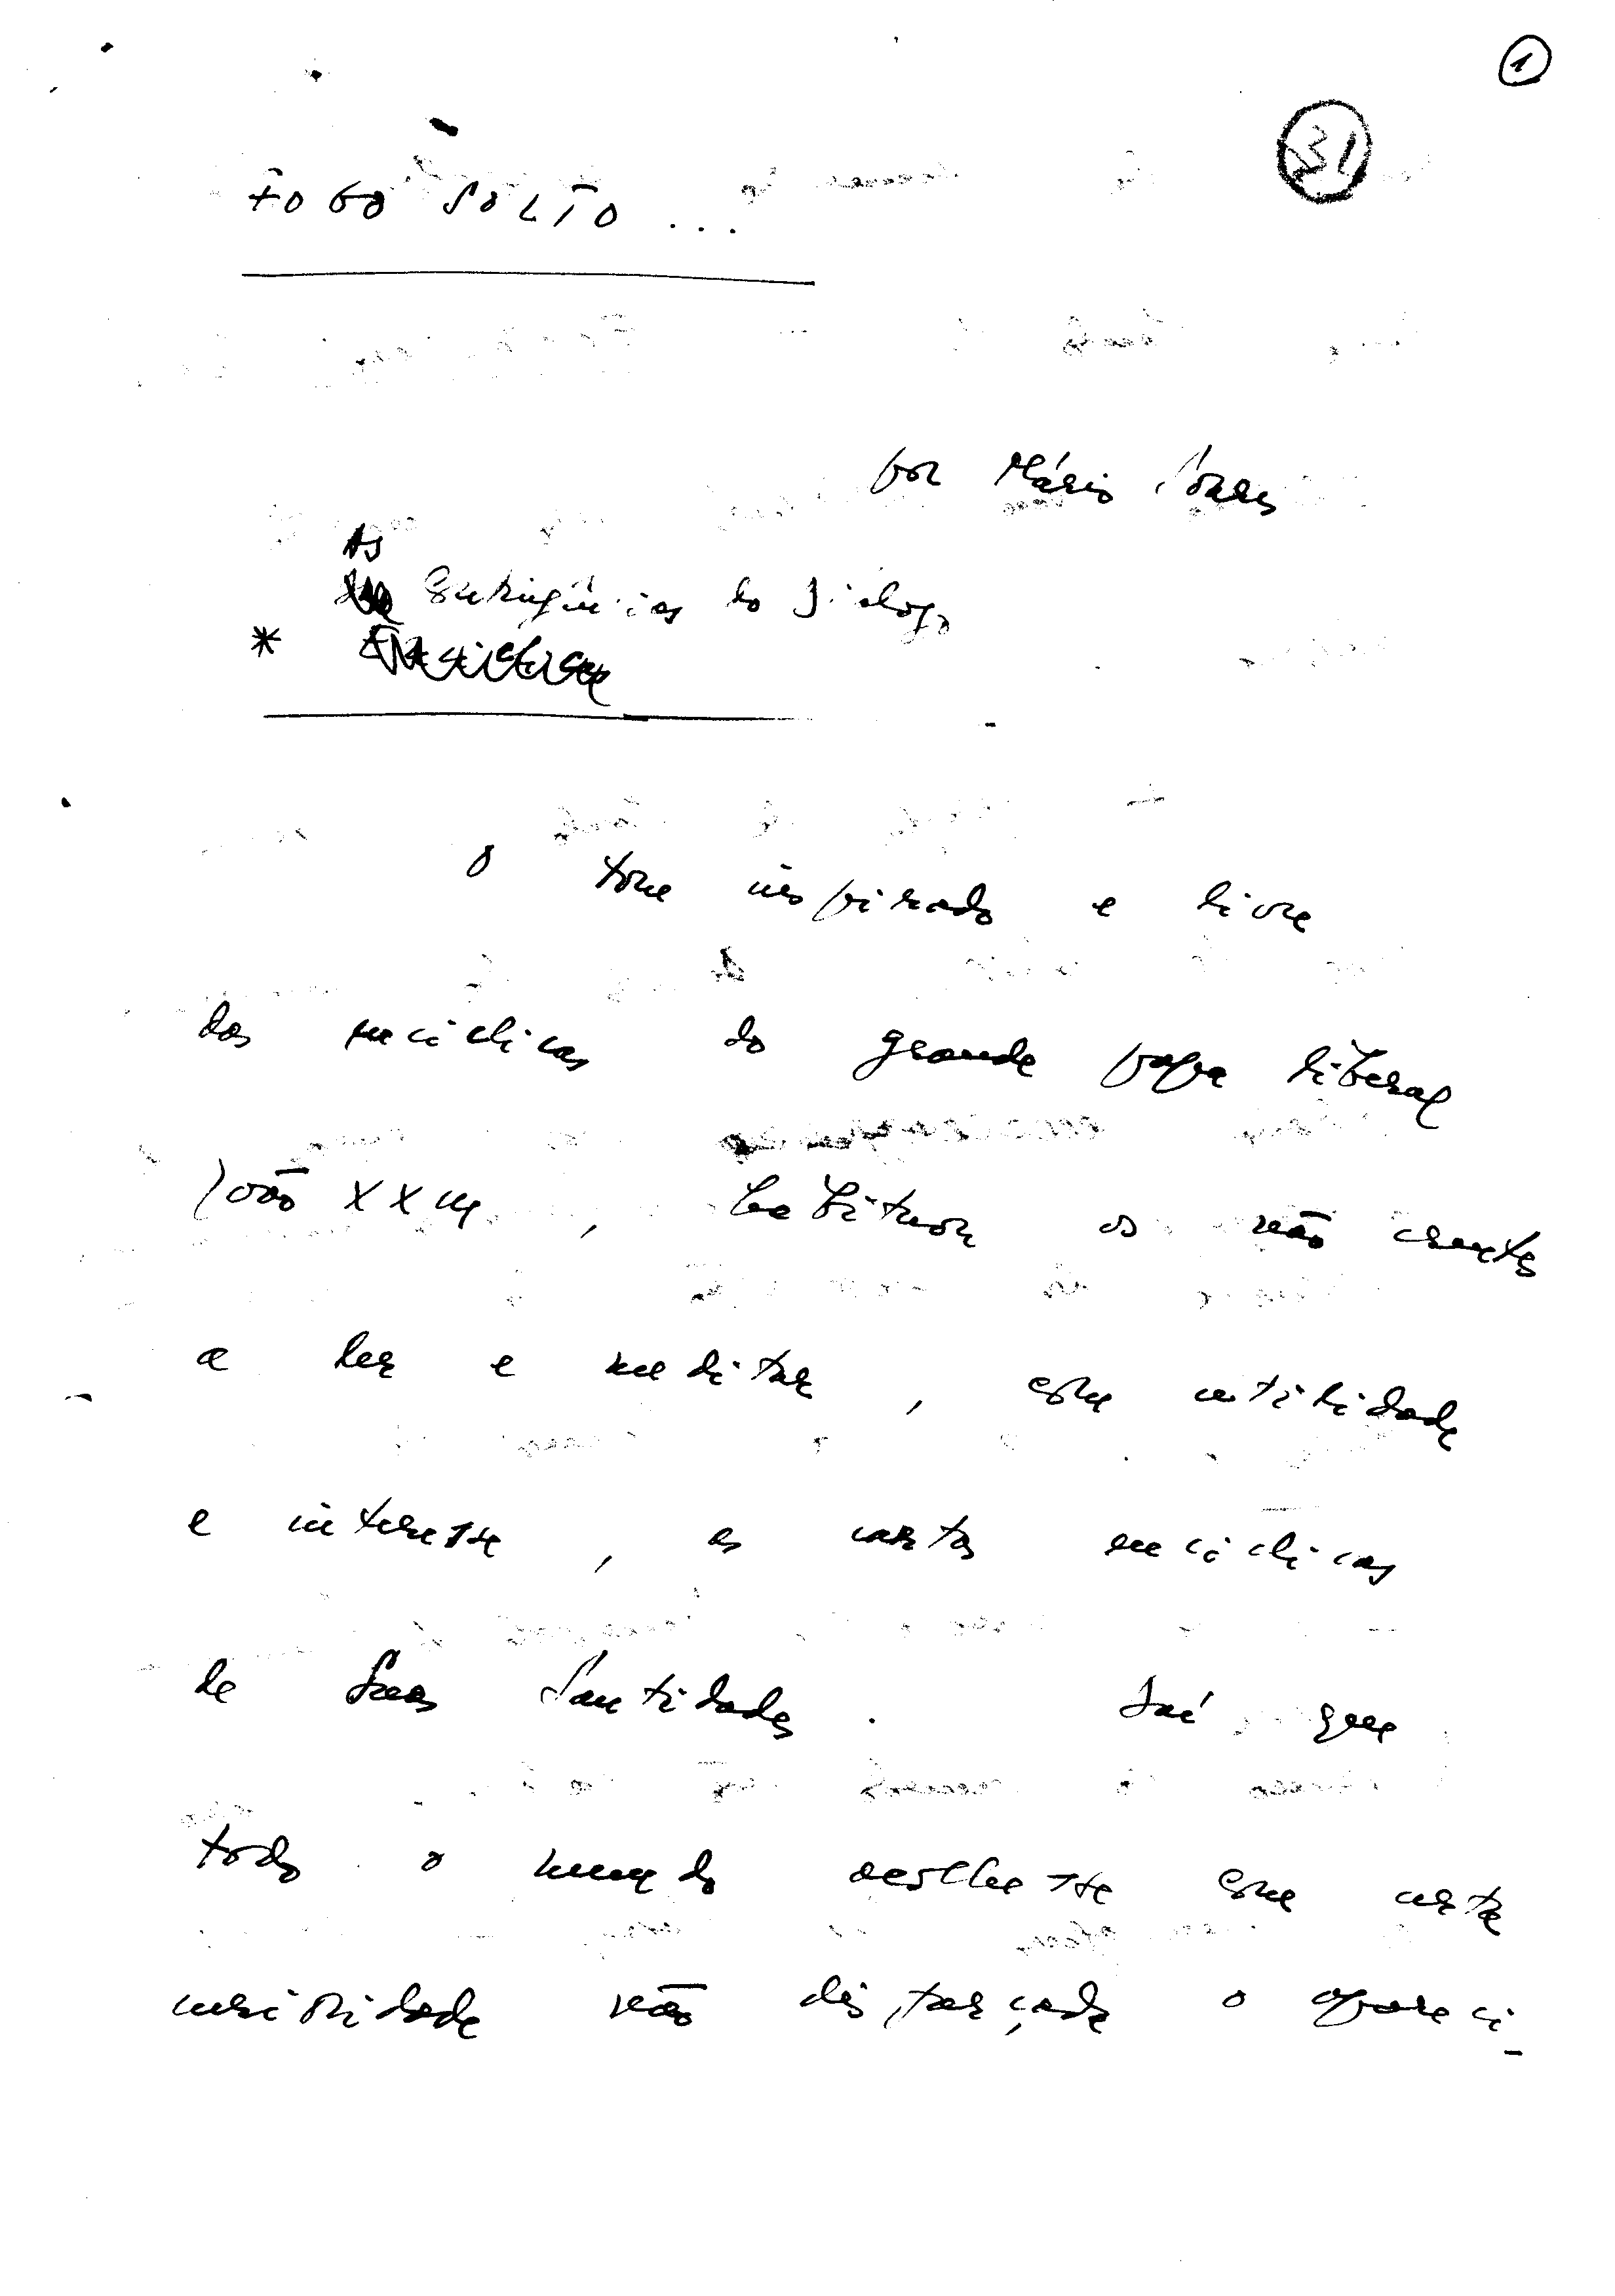 1
31
FOGO SOLTO ...
por Mário Soares
As
Exigências do Diálogo
*
O tom inspirado e livre
das encíclicas do grande papa liberal
João XXIII, habituou os não crentes
a ler e meditar, com utilidade
e interesse, as cartas encíclicas
de Suas Santidades. Daí que
todo o mundo aguardasse com certa
curiosidade não disfarçada o apareci-